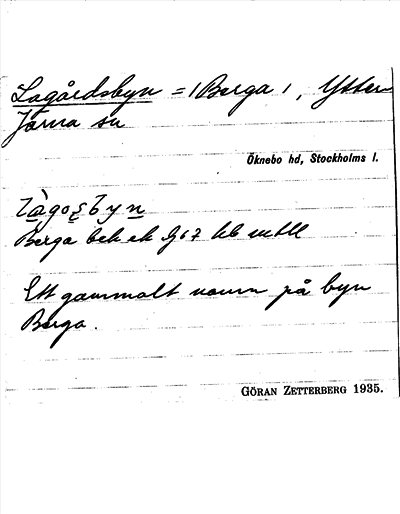 Lagårdsbyn = (Berga), Ytter
Järna sn
Öknebo hd, Stockholms l.
làgoṣbyn
Berga bek ek
Ett gammalt namn på byn
Berga.
GÖRAN ZETTERBERG 1935.